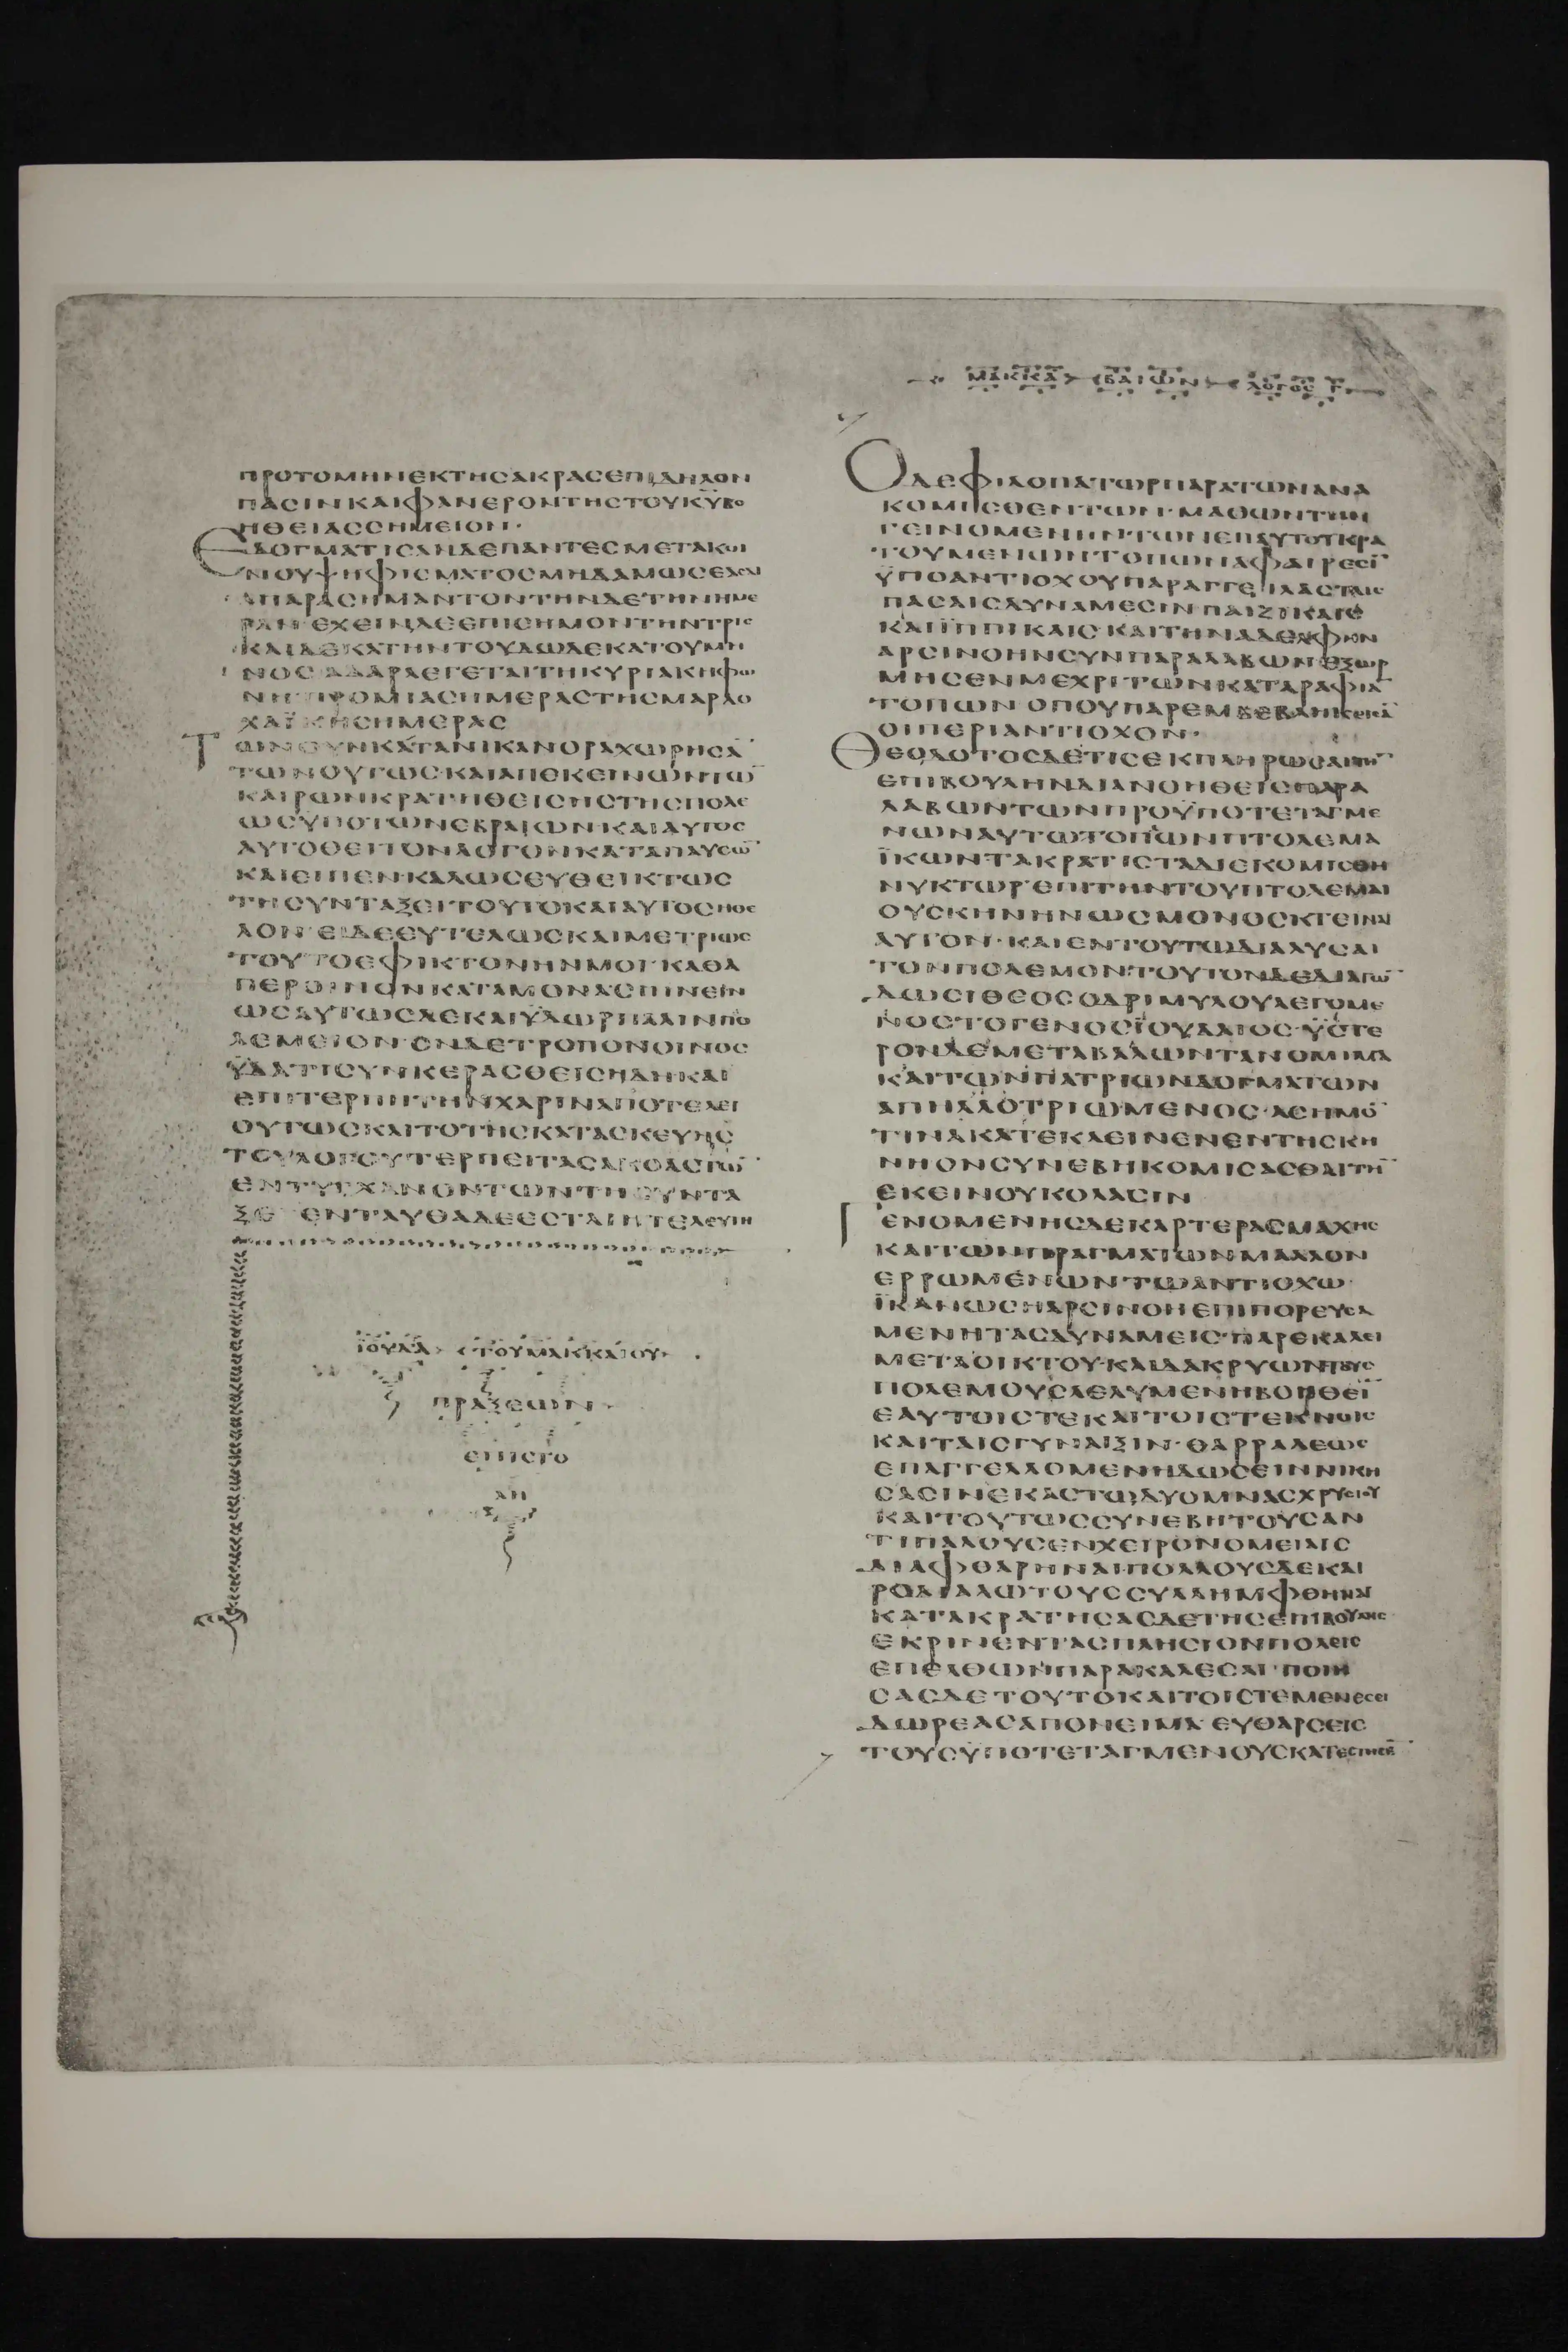 ΠΡΟΤΟΜΗΝΕΚΤΗСΑΚΡΑСΕΠΙΔΗΛΟΝ
ΠΑСΙΝΚΑΙΦΑΝΕΡΟΝΤΗСΤΟΥΚΥΒΟ
ΗΘΕΙΑССΗΜΕΙΟΝ·
ΕΔΟΓΜΑΤΙСΑΝΔΕΠΑΝΤΕСΜΕΤΑΚΟΙ
ΝΟΥΨΗΦΙСΜΑΤΟСΜΗΔΑΜΩСΕΑСΑΙ
ΑΠΑΡΑСΗΜΑΝΤΟΝΤΗΝΔΕΤΗΝΗΜΕ
ΡΑΝ ΕΧΕΙΝΔΕΕΠΙСΗΜΟΝΤΗΝΤΡΙС
ΚΑΙΔΕΚΑΤΗΝΤΟΥΔΩΔΕΚΑΤΟΥΜΗ
ΝΟС ΑΔΑΡΛΕΓΕΤΑΙΤΗСΥΡΙΑΚΗΦΩ
ΝΗ ΠΡΟΜΙΑСΗΜΕΡΑСΤΗСΜΑΡΔΟ
ΧΑΪΚΗСΗΜΕΡΑС
ΤΩΝΟΥΝΚΑΤΑΝΙΚΑΝΟΡΑΧΩΡΗСΑ̅
ΤΩΝΟΥΤΩС·ΚΑΙΑΠΕΚΕΙΝΩΝΤΩ̅
ΚΑΙΡΩΝΚΡΑΤΗΘΕΙСΗСΤΗСΠΟΛΕ
ΩСΥΠΟΤΩΝΕΒΡΑΙΩΝ·ΚΑΙΑΥΤΟС
ΑΥΤΟΘΕΙΤΟΝΛΟΓΟΝΚΑΤΑΠΑΥСΩ̅
ΚΑΙΕΙΠΕΝ·ΚΑΛΩСΕΥΘΕΙΚΤΩС
ΤΗСΥΝΤΑΞΕΙΤΟΥΤΟΚΑΙΑΥΤΟСΗΘΕ
ΛΟΝ ΕΙΔΕΕΥΤΕΛΩСΚΑΙΜΕΤΡΙΩС
ΤΟΥΤΟΕΦΙΚΤΟΝΗΝΜΟΙ·ΚΑΘΑ
ΠΕΡΟΙΝΟΝΚΑΤΑΜΟΝΑСΠΙΝΕΙΝ
ΩСΑΥΤΩСΔΕΚΑΙΫΔΩΡΠΑΛΙΝΠΟ
ΛΕΜΕΙΟΝ·ΟΝΔΕΤΡΟΠΟΝΟΙΝΟС
ΫΔΑΤΙСΥΝΚΕΡΑСΘΕΙСΗΔΗΚΑΙ
ΕΠΙΤΕΡΠΗΤΗΝΧΑΡΙΝΑΠΟΤΕΛΕΙ
ΟΥΤΩСΚΑΙΤΟΤΗСΚΑΤΑСΚΕΥΗС
ΤΟΥΛΟΓΟΥΤΕΡΠΕΙΤΑСΑΚΟΑСΤΩ̅
ΕΝΤΥΓΧΑΝΟΝΤΩΝΤΗСΥΝΤΑ
ΞΕΙ ΕΝΤΑΥΘΑΔΕΕСΤΑΙΗΤΕΛΕΥΤΗ
ΪΟΥΔΑ ΤΟΥΜΑΚΚΑΙΟΥ
ΠΡΑΞΕΩΝ
ΕΠΙСΤΟ
ΛΗ
ΜΑΚΚΑ ΒΑΙΩΝ ΛΟΓΟС Γ
ΟΔΕΦΙΛΟΠΑΤΩΡΠΑΡΑΤΩΝΑΝΑ
ΚΟΜΙСΘΕΝΤΩΝ·ΜΑΘΩΝΤΗΝ
ΓΕΙΝΟΜΕΝΗΝΤΩΝΕΠΑΥΤΟΥΚΡΑ
ΤΟΥΜΕΝΩΝΤΟΠΩΝΑΦΑΙΡΕСΙ̅
ΫΠΟΑΝΤΙΟΧΟΥΠΑΡΑΓΓΕΙΛΑСΤΑΙС
ΠΑСΑΙСΔΥΝΑΜΕСΙΝΠΑΙΖΙΚΑΙСΤΕ
ΚΑΙΪΠΠΙΚΑΙС·ΚΑΙΤΗΝΑΔΕΛΦΗΝ
ΑΡСΙΝΟΗΝСΥΝΠΑΡΑΛΑΒΩΝ ΕΞΩΡ
ΜΗСΕΝΜΕΧΡΙΤΩΝΚΑΤΑΡΑΦΙΑ̅
ΤΟΠΩΝ ΟΠΟΥΠΑΡΕΜΒΕΒΛΗΚΕΙСΑ̅
ΟΙΠΕΡΙΑΝΤΙΟΧΟΝ·
ΘΕΟΔΟΤΟСΔΕΤΙСΕΚΠΛΗΡΩСΑΙΤΗ̅
ΕΠΙΒΟΥΛΗΝΔΙΑΝΟΗΘΕΙСΠΑΡΑ
ΛΑΒΩΝΤΩΝΠΡΟΫΠΟΤΕΤΑΓΜΕ
ΝΩΝΑΥΤΩΤΟΠΩΝΠΤΟΛΕΜΑ
ΪΚΩΝΤΑΚΡΑΤΙСΤΑΔΙΕΚΟΜΙСΘΗ
ΝΥΚΤΩΡ·ΕΠΙΤΗΝΤΟΥΠΤΟΛΕΜΑΙ
ΟΥСΚΗΝΗΝΩСΜΟΝΟСΚΤΕΙΝΑΙ
ΑΥΤΟΝ·ΚΑΙΕΝΤΟΥΤΩΔΙΑΛΥСΑΙ
ΤΟΝΠΟΛΕΜΟΝ·ΤΟΥΤΟΝΔΕΔΙΑΓΩ̅
ΔΩСΙΘΕΟСΟΔΡΙΜΥΛΟΥΛΕΓΟΜΕ
ΝΟСΤΟΓΕΝΟСΪΟΥΔΑΙΟС·ΫСΤΕ
ΡΟΝΔΕΜΕΤΑΒΑΛΩΝΤΑΝΟΜΙΜΑ
ΚΑΙΤΩΝΠΑΤΡΙΩΝΔΟΓΜΑΤΩΝ
ΑΠΗΛΛΟΤΡΙΩΜΕΝΟС·ΑСΗΜΟ̅
ΤΙΝΑΚΑΤΕΚΛΕΙΝΕΝΕΝΤΗСΚΗ
ΝΗΟΝСΥΝΕΒΗΚΟΜΙСΑСΘΑΙΤΗ̅
ΕΚΕΙΝΟΥΚΟΛΑСΙΝ
ΓΕΝΟΜΕΝΗСΔΕΚΑΡΤΕΡΑСΜΑΧΗС
ΚΑΙΤΩΝΠΡΑΓΜΑΤΩΝΜΑΛΛΟΝ
ΕΡΡΩΜΕΝΩΝ·ΤΩΑΝΤΙΟΧΩ·
ΪΚΑΝΩСΗΑΡСΙΝΟΗΕΠΙΠΟΡΕΥСΑ
ΜΕΝΗΤΑСΔΥΝΑΜΕΙС·ΠΑΡΕΚΑΛΕΙ
ΜΕΤΑΟΙΚΤΟΥ·ΚΑΙΔΑΚΡΥΩΝΤΟΥС
ΠΟΛΕΜΟΥСΛΕΛΥΜΕΝΗΒΟΗΘΕΙ̅
ΕΑΥΤΟΙСΤΕΚΑΙΤΟΙСΤΕΚΝΟΙС
ΚΑΙΤΑΙСΓΥΝΑΙΞΙΝ·ΘΑΡΡΑΛΕΩС
ΕΠΑΓΓΕΛΛΟΜΕΝΗΔΩСΕΙΝΝΙΚΗ
СΑСΙΝΕΚΑСΤΩΔΥΟΜΝΑСΧΡΥСΙΟΥ
ΚΑΙΤΟΥΤΩССΥΝΕΒΗΤΟΥСΑΝ
ΤΙΠΑΛΟΥСΕΝΧΕΙΡΟΝΟΜΕΙΑΙС
ΔΙΑΦΘΑΡΗΝΑΙ·ΠΟΛΛΟΥСΔΕΚΑΙ
ΔΟΡΙΑΛΩΤΟΥССΥΛΛΗΜΦΘΗΝΑΙ
ΚΑΤΑΚΡΑΤΗСΑСΔΕΤΗСΕΠΙΒΟΥΛΗС
ΕΚΡΙΝΕΝΤΑСΠΛΗСΙΟΝΠΟΛΕΙС
ΕΠΕΛΘΩΝΠΑΡΑΚΑΛΕСΑΙ·ΠΟΙΗ
СΑСΔΕΤΟΥΤΟΚΑΙΤΟΙСΤΕΜΕΝΕСΕΙ
ΔΩΡΕΑСΑΠΟΝΕΙΜΑ ΕΥΘΑΡСΕΙС
ΤΟΥСΫΠΟΤΕΤΑΓΜΕΝΟΥСΚΑΤΕСΤΗСΕ̅